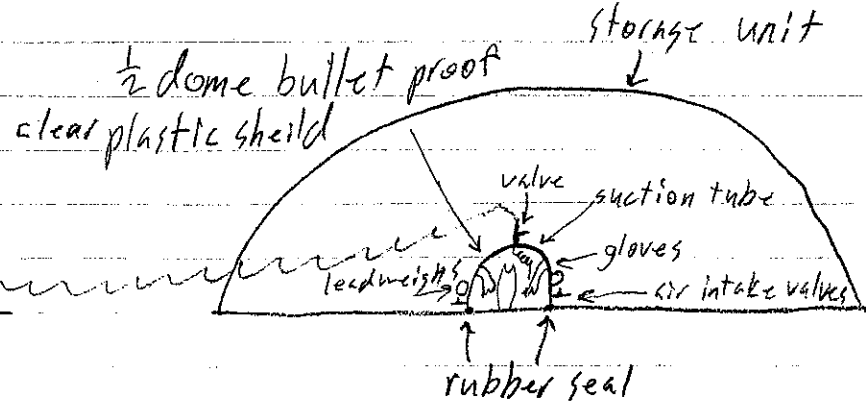 storage unit
½ dome bullet proof
clear plastic sheild
valve
suction tube
gloves
leadweighs
air intake valves
rubber seal